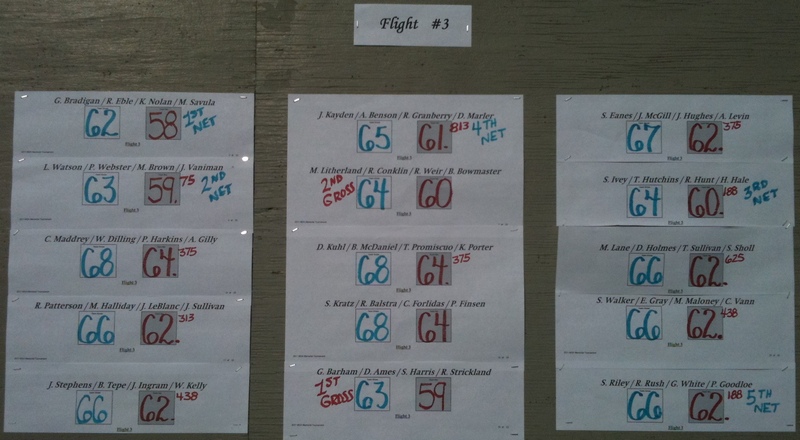 Flight #3
G. Bradigan / R. Eble / K. Nolan / M. Savula
62 58 1ST NET
Flight 3
L. Watson / P. Webster / M. Brown / J. Vaniman
63 59.75 2ND NET
Flight 3
C. Maddrey / W. Dilling / P. Harkins / A. Gilly
68 64.375
Flight 3
R. Patterson / M. Halliday / J. LeBlanc / J. Sullivan
66 62.313
Flight 3
J. Stephens / B. Tepe / J. Ingram / W. Kelly
66 62.438
Flight 3
J. Kayden / A. Benson / R. Granberry / D. Marler
65 61.813 4TH NET
Flight 3
M. Litherland / R. Conklin / R. Weir / B. Bowmaster
2ND GROSS 64 60
Flight 3
D. Kuhl / B. McDaniel / T. Promiscuo / K. Porter
68 64.375
Flight 3
S. Kratz / R. Balstra / C. Forlidas / P. Finsen
68 64
Flight 3
G. Barham / D. Ames / S. Harris / R. Strickland
1ST GROSS 63 59
Flight 3
S. Eanes / J. McGill / J. Hughes / A. Levin
67 62.375
Flight 3
S. Ivey / T. Hutchins / R. Hunt / H. Hale
64 60.188 3RD NET
Flight 3
M. Lane / D. Holmes / T. Sullivan / S. Sholl
66 62.625
Flight 3
S. Walker / E. Gray / M. Maloney / C. Vann
66 62.438
Flight 3
S. Riley / R. Rush / G. White / P. Goodloe
66 62.188 5TH NET
Flight 3